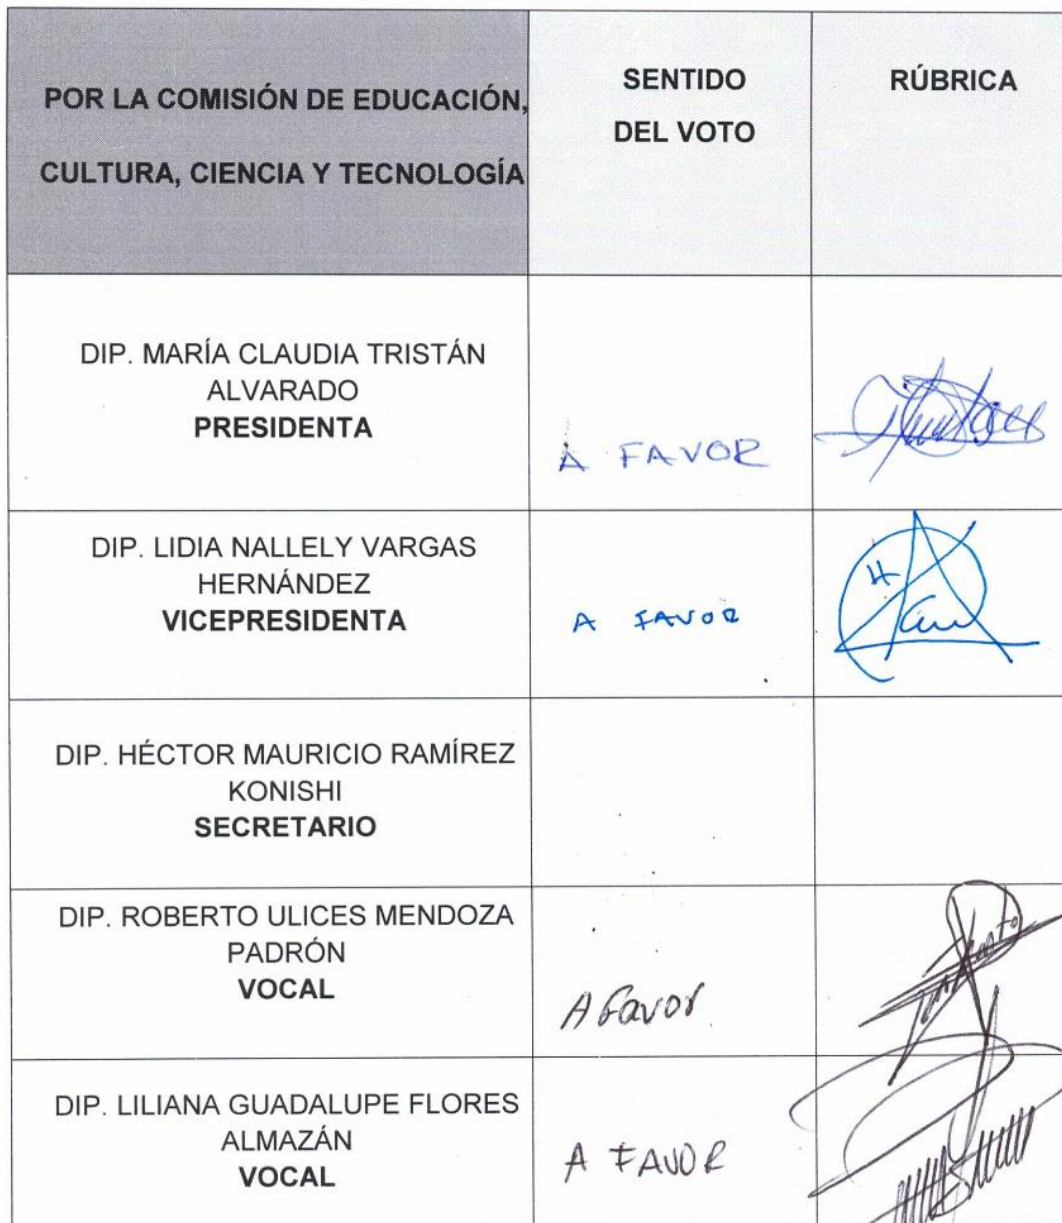 POR LA COMISIÓN DE EDUCACIÓN,
CULTURA, CIENCIA Y TECNOLOGÍA
SENTIDO
DEL VOTO
RÚBRICA
DIP. MARÍA CLAUDIA TRISTÁN
ALVARADO
PRESIDENTA
A FAVOR
DIP. LIDIA NALLELY VARGAS
HERNÁNDEZ
VICEPRESIDENTA
A FAVOR
DIP. HÉCTOR MAURICIO RAMÍREZ
KONISHI
SECRETARIO
DIP. ROBERTO ULICES MENDOZA
PADRÓN
VOCAL
A Favor
DIP. LILIANA GUADALUPE FLORES
ALMAZÁN
VOCAL
A FAVOR